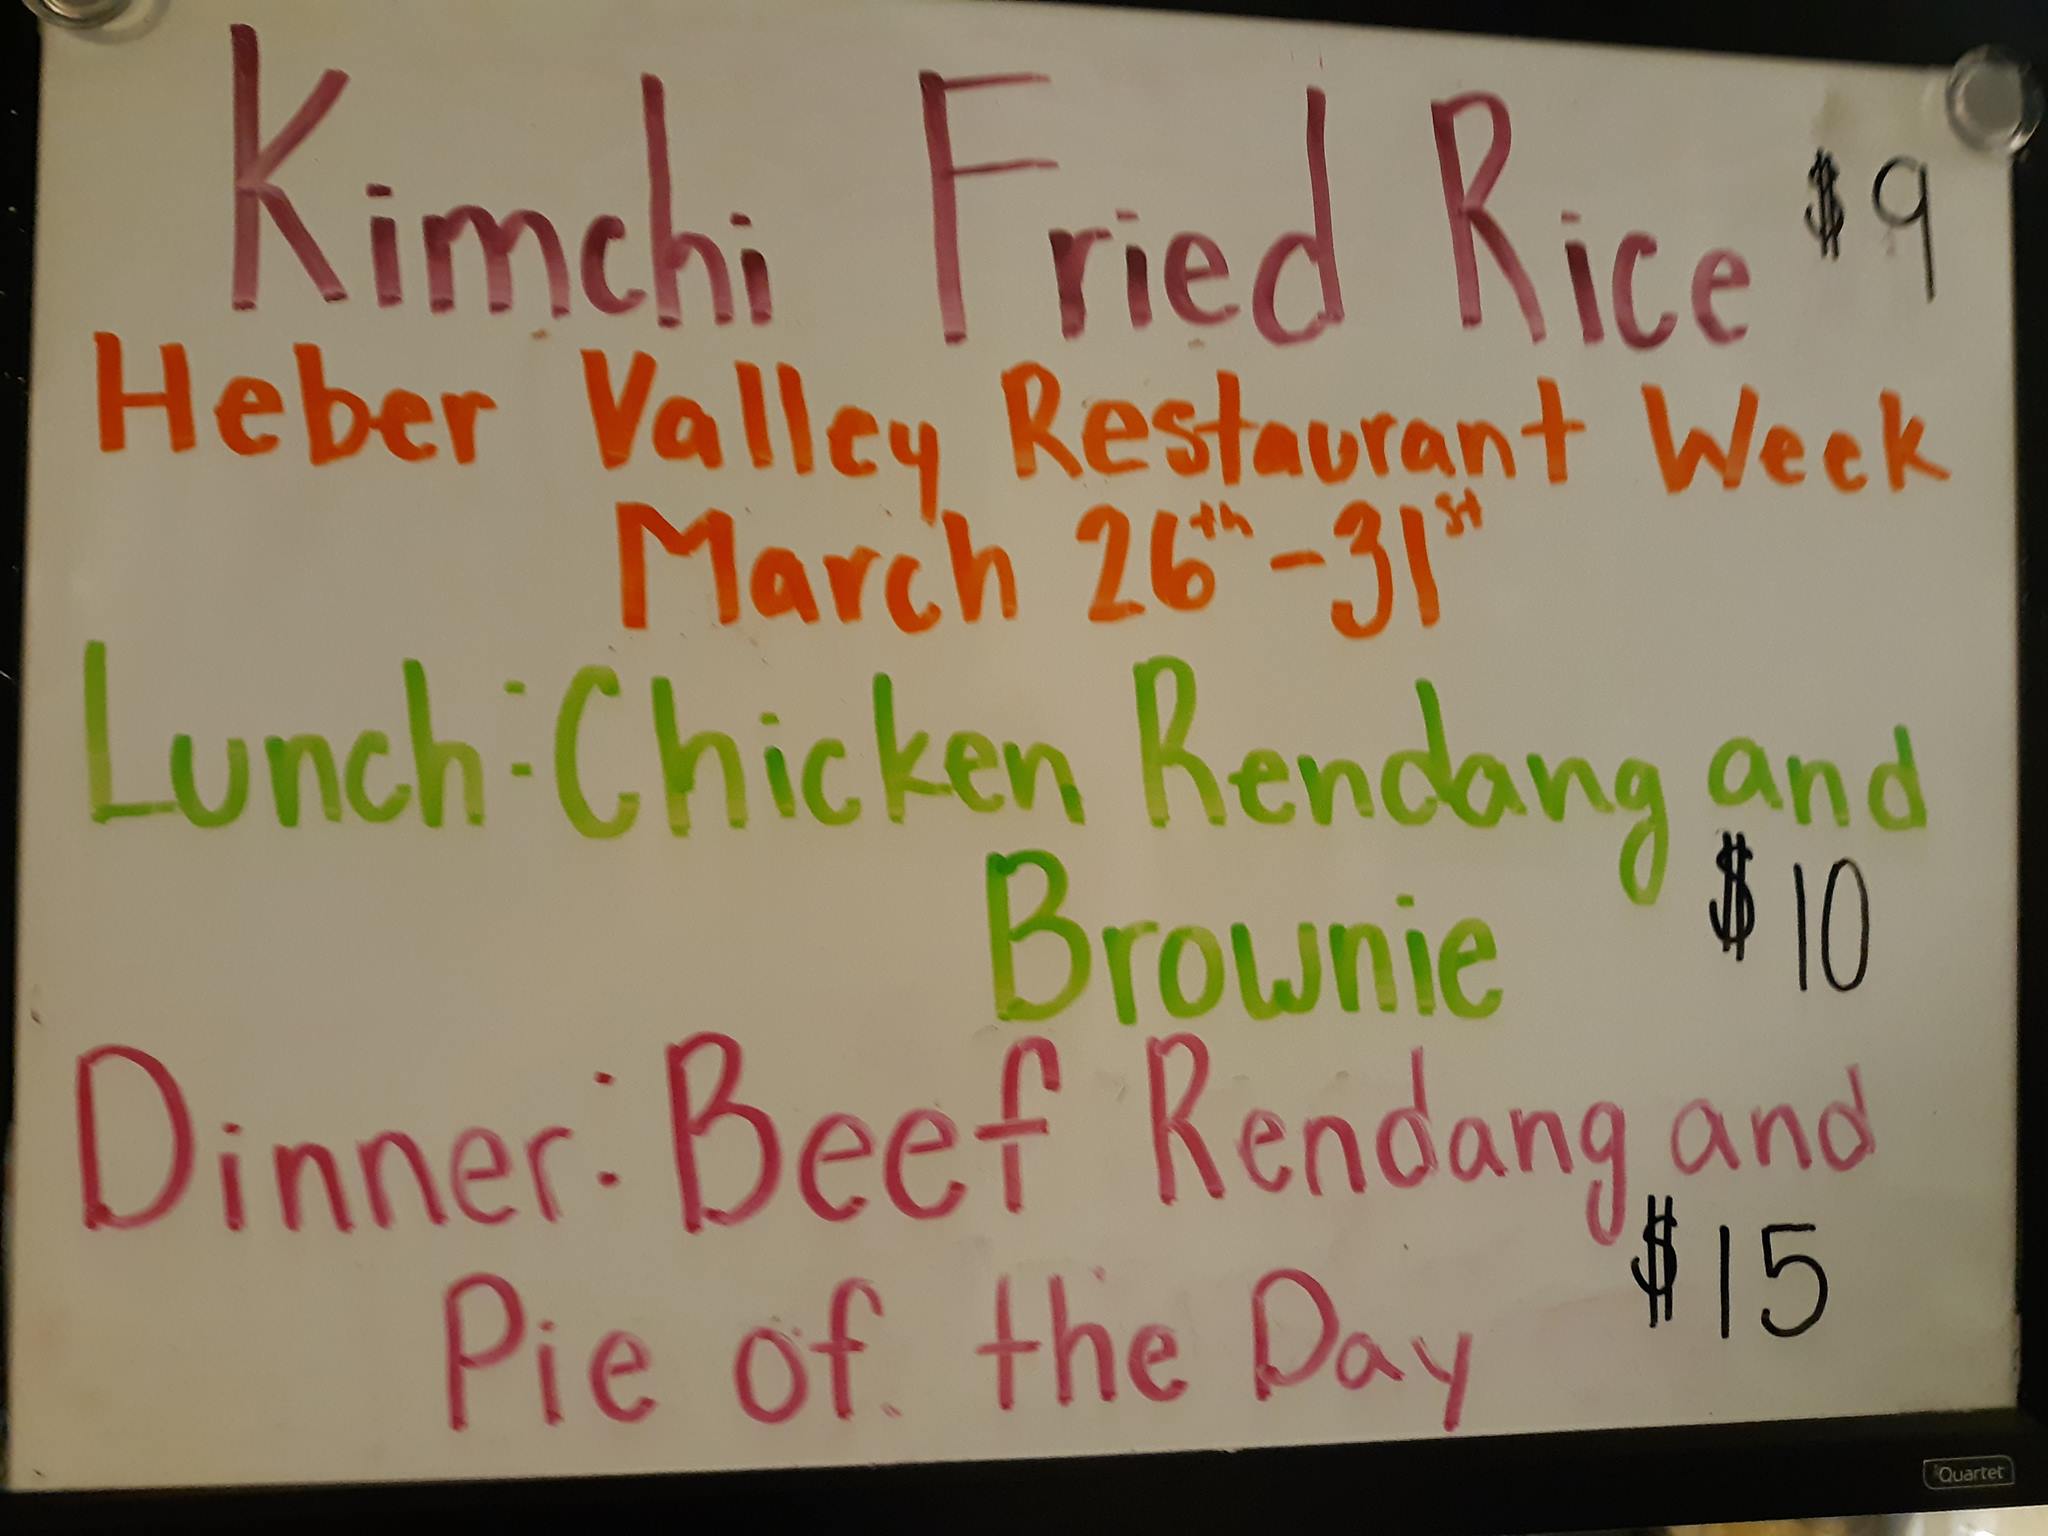 Kimchi Fried Rice $9
Heber Valley Restaurant Week
March 26th-31st
Lunch: Chicken Rendang and
Brownie $10
Dinner: Beef Rendang and
Pie of the Day $15
Quartet